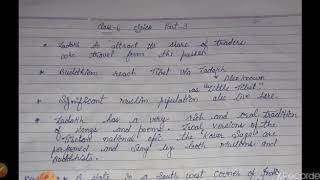 Class-6 Civics Part-3
* Ladakh to attract its share of traders
who travel from the passes
* Buddhism reach Tibet via Ladakh
Also known
as "Little Tibet"
* Significant muslim population also live here.
* Ladakh has a very rich and oral tradition
of songs and poems. Local versions of the
Tibetan national epic the Kesar Saga are
performed and sung by both muslims and
Buddhists.
A state in a South west corner of India